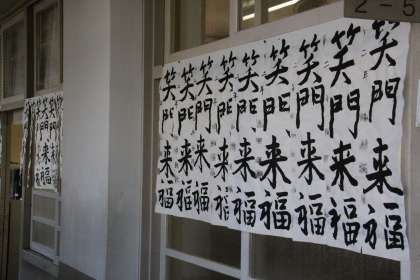 2-5
笑門来福
笑門来福
笑門来福
笑門来福
笑門来福
笑門来福
笑門来福
笑門来福
笑門来福
笑門来福
笑門来福
笑門来福